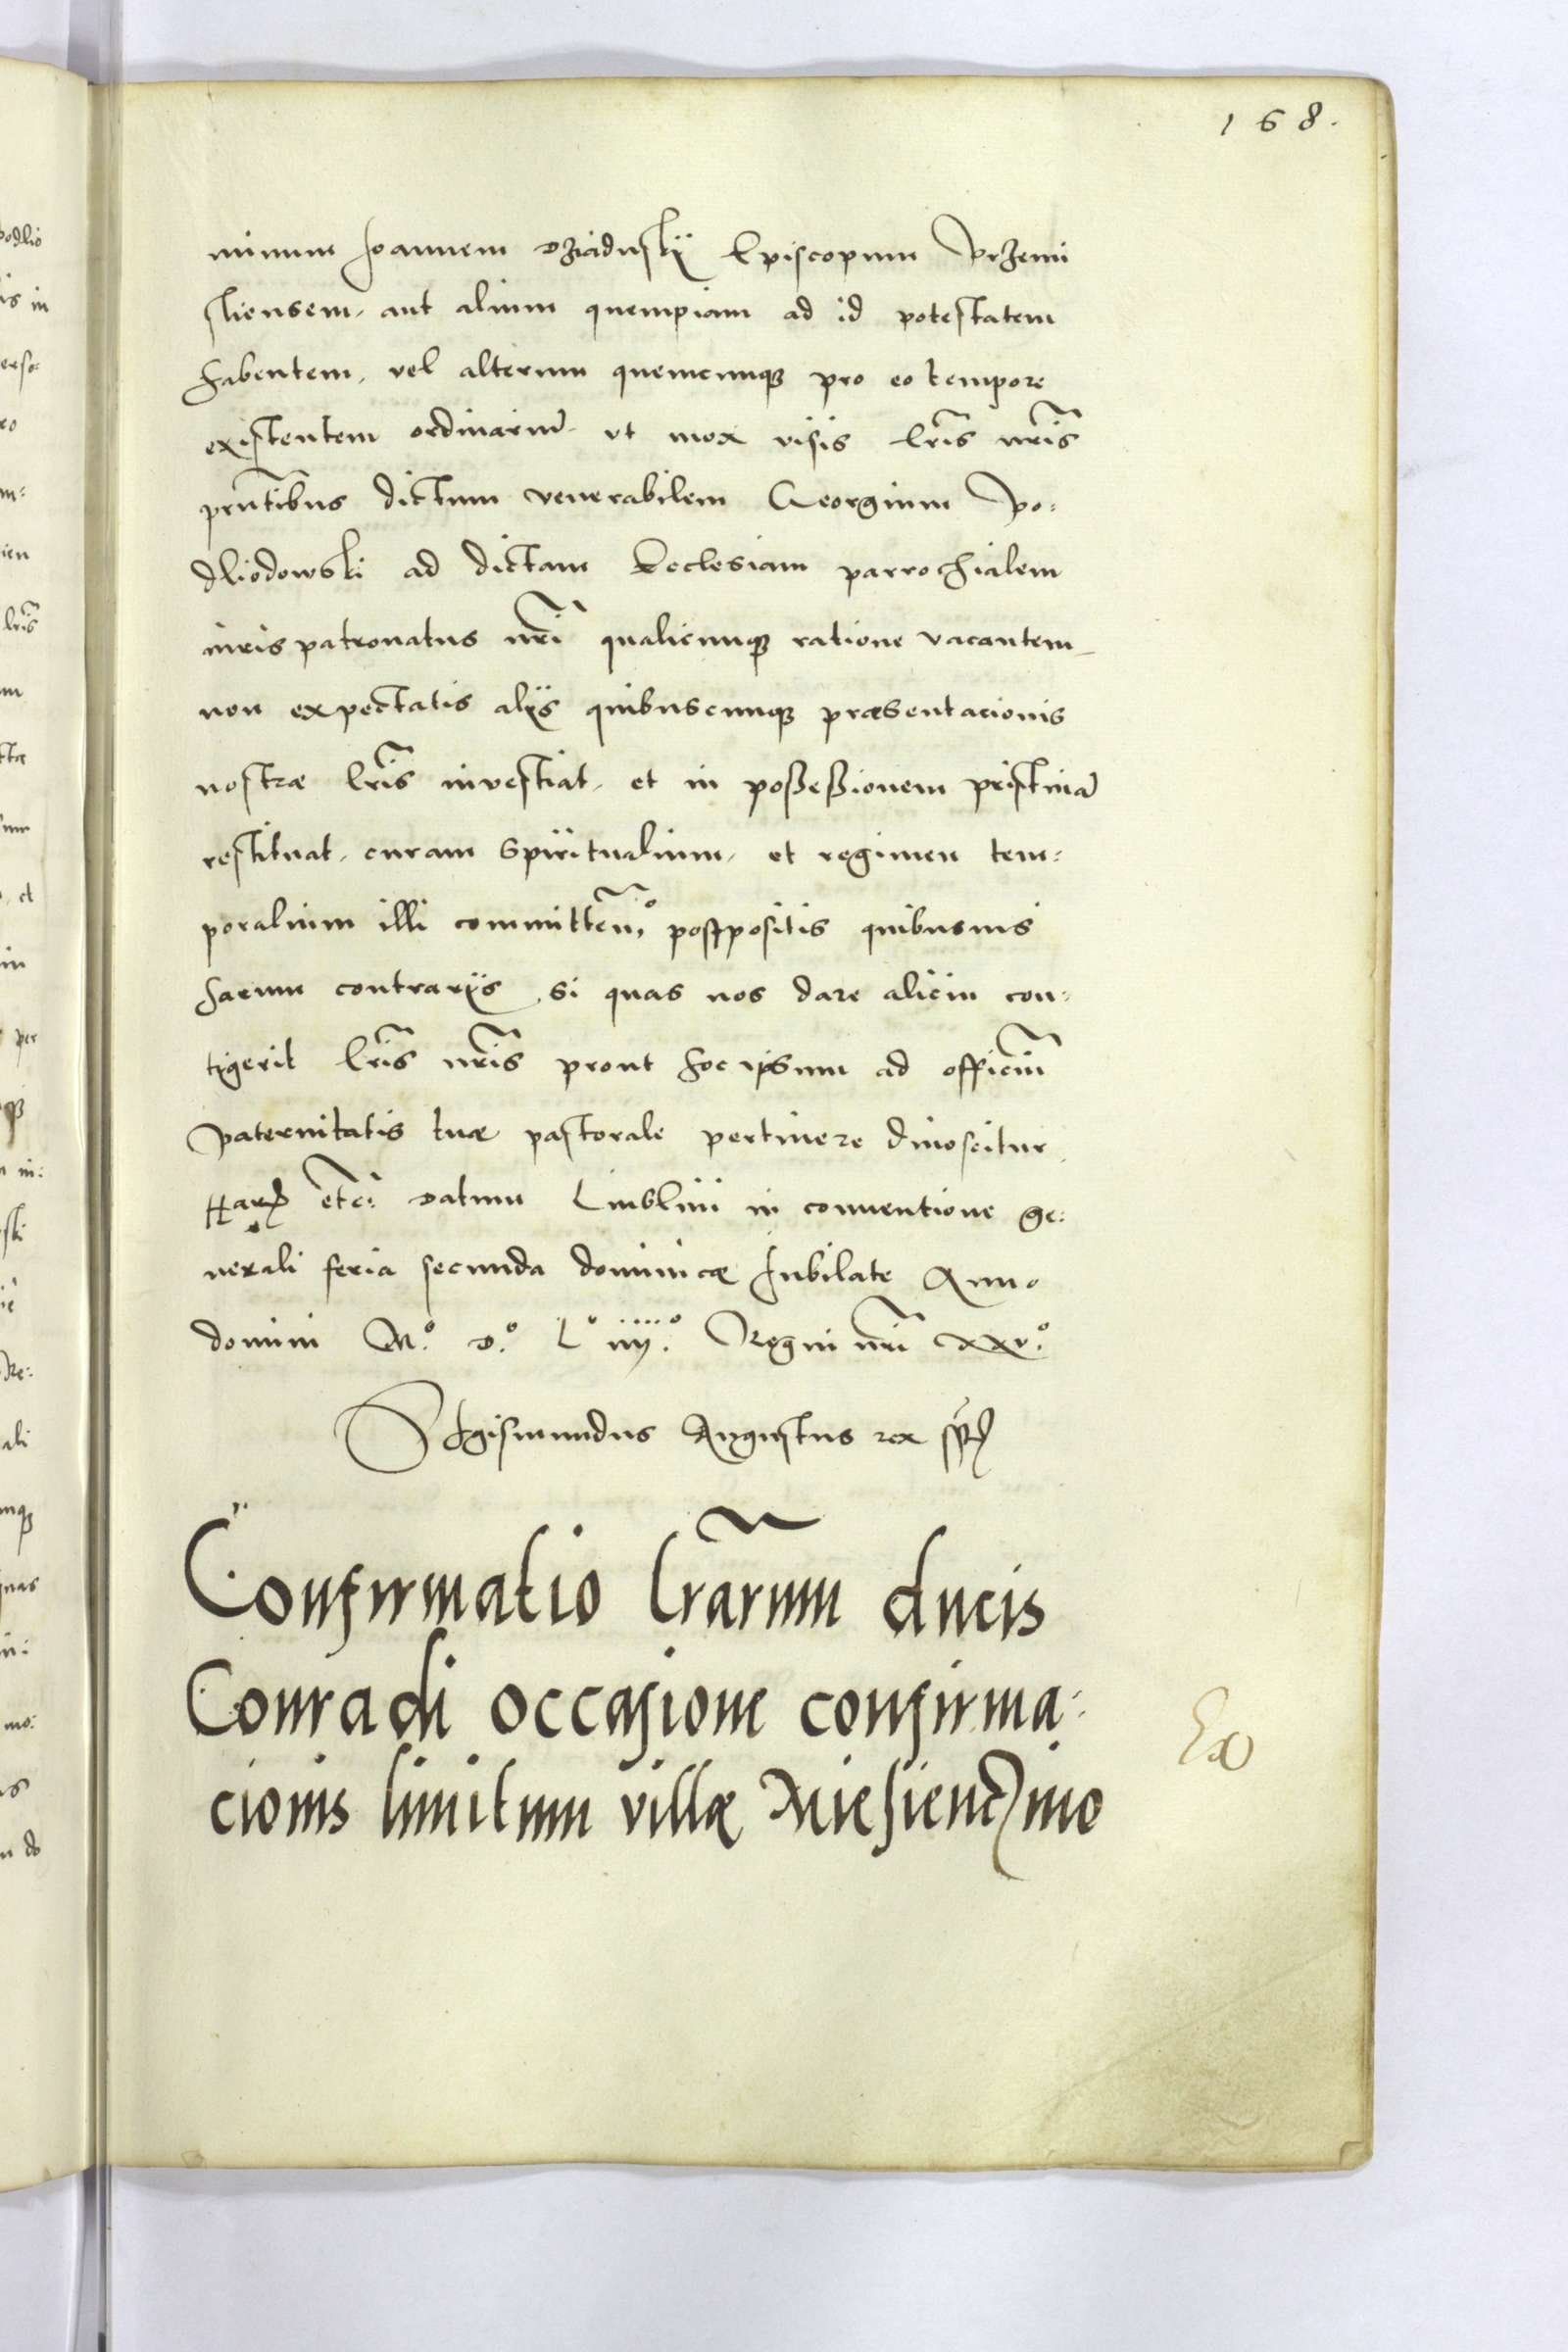 168.
minum Joannem Dziaduskÿ Episcopum Przemi
sliensem, aut alium quempiam ad id potestatem
habentem, vel alterum quemcunqꝫ pro eo tempore
existentem ordinariũ, ut mox visis lr̃is nr̃is
prñtibus dictum venerabilem Georgium Po:
dliodowski ad dictam Ecclesiam parrochialem
iuris patronatus nr̃i qualicunqꝫ ratione vacantem
non expectatis alÿs quibuscunqꝫ præsentacionis
nostræ lr̃is investiat, et in possessionem pristinã
restituat, curam spiritualium, et regimen tem:
poralium illi committeñ, postpositis quibusuis
harum contrarÿs, si quas nos dare alicui con:
tigerit lr̃is nr̃is prout hoc ipsum ad officiũ
Paternitatis tuæ pastorale pertinere dinoscitur
Harꝫ etc̃: Datum Lublini in conventione ge:
nerali feria secunda dominicæ Jubilate Anno
domini M.º D.º Lº iiij.º Regni nr̃i xxv.º
Sigismundus Augustus rex sp̃t
Confirmatio lr̃arum ducis
Conradi occasione confirma:
cionis limitum villæ Niesiendzino